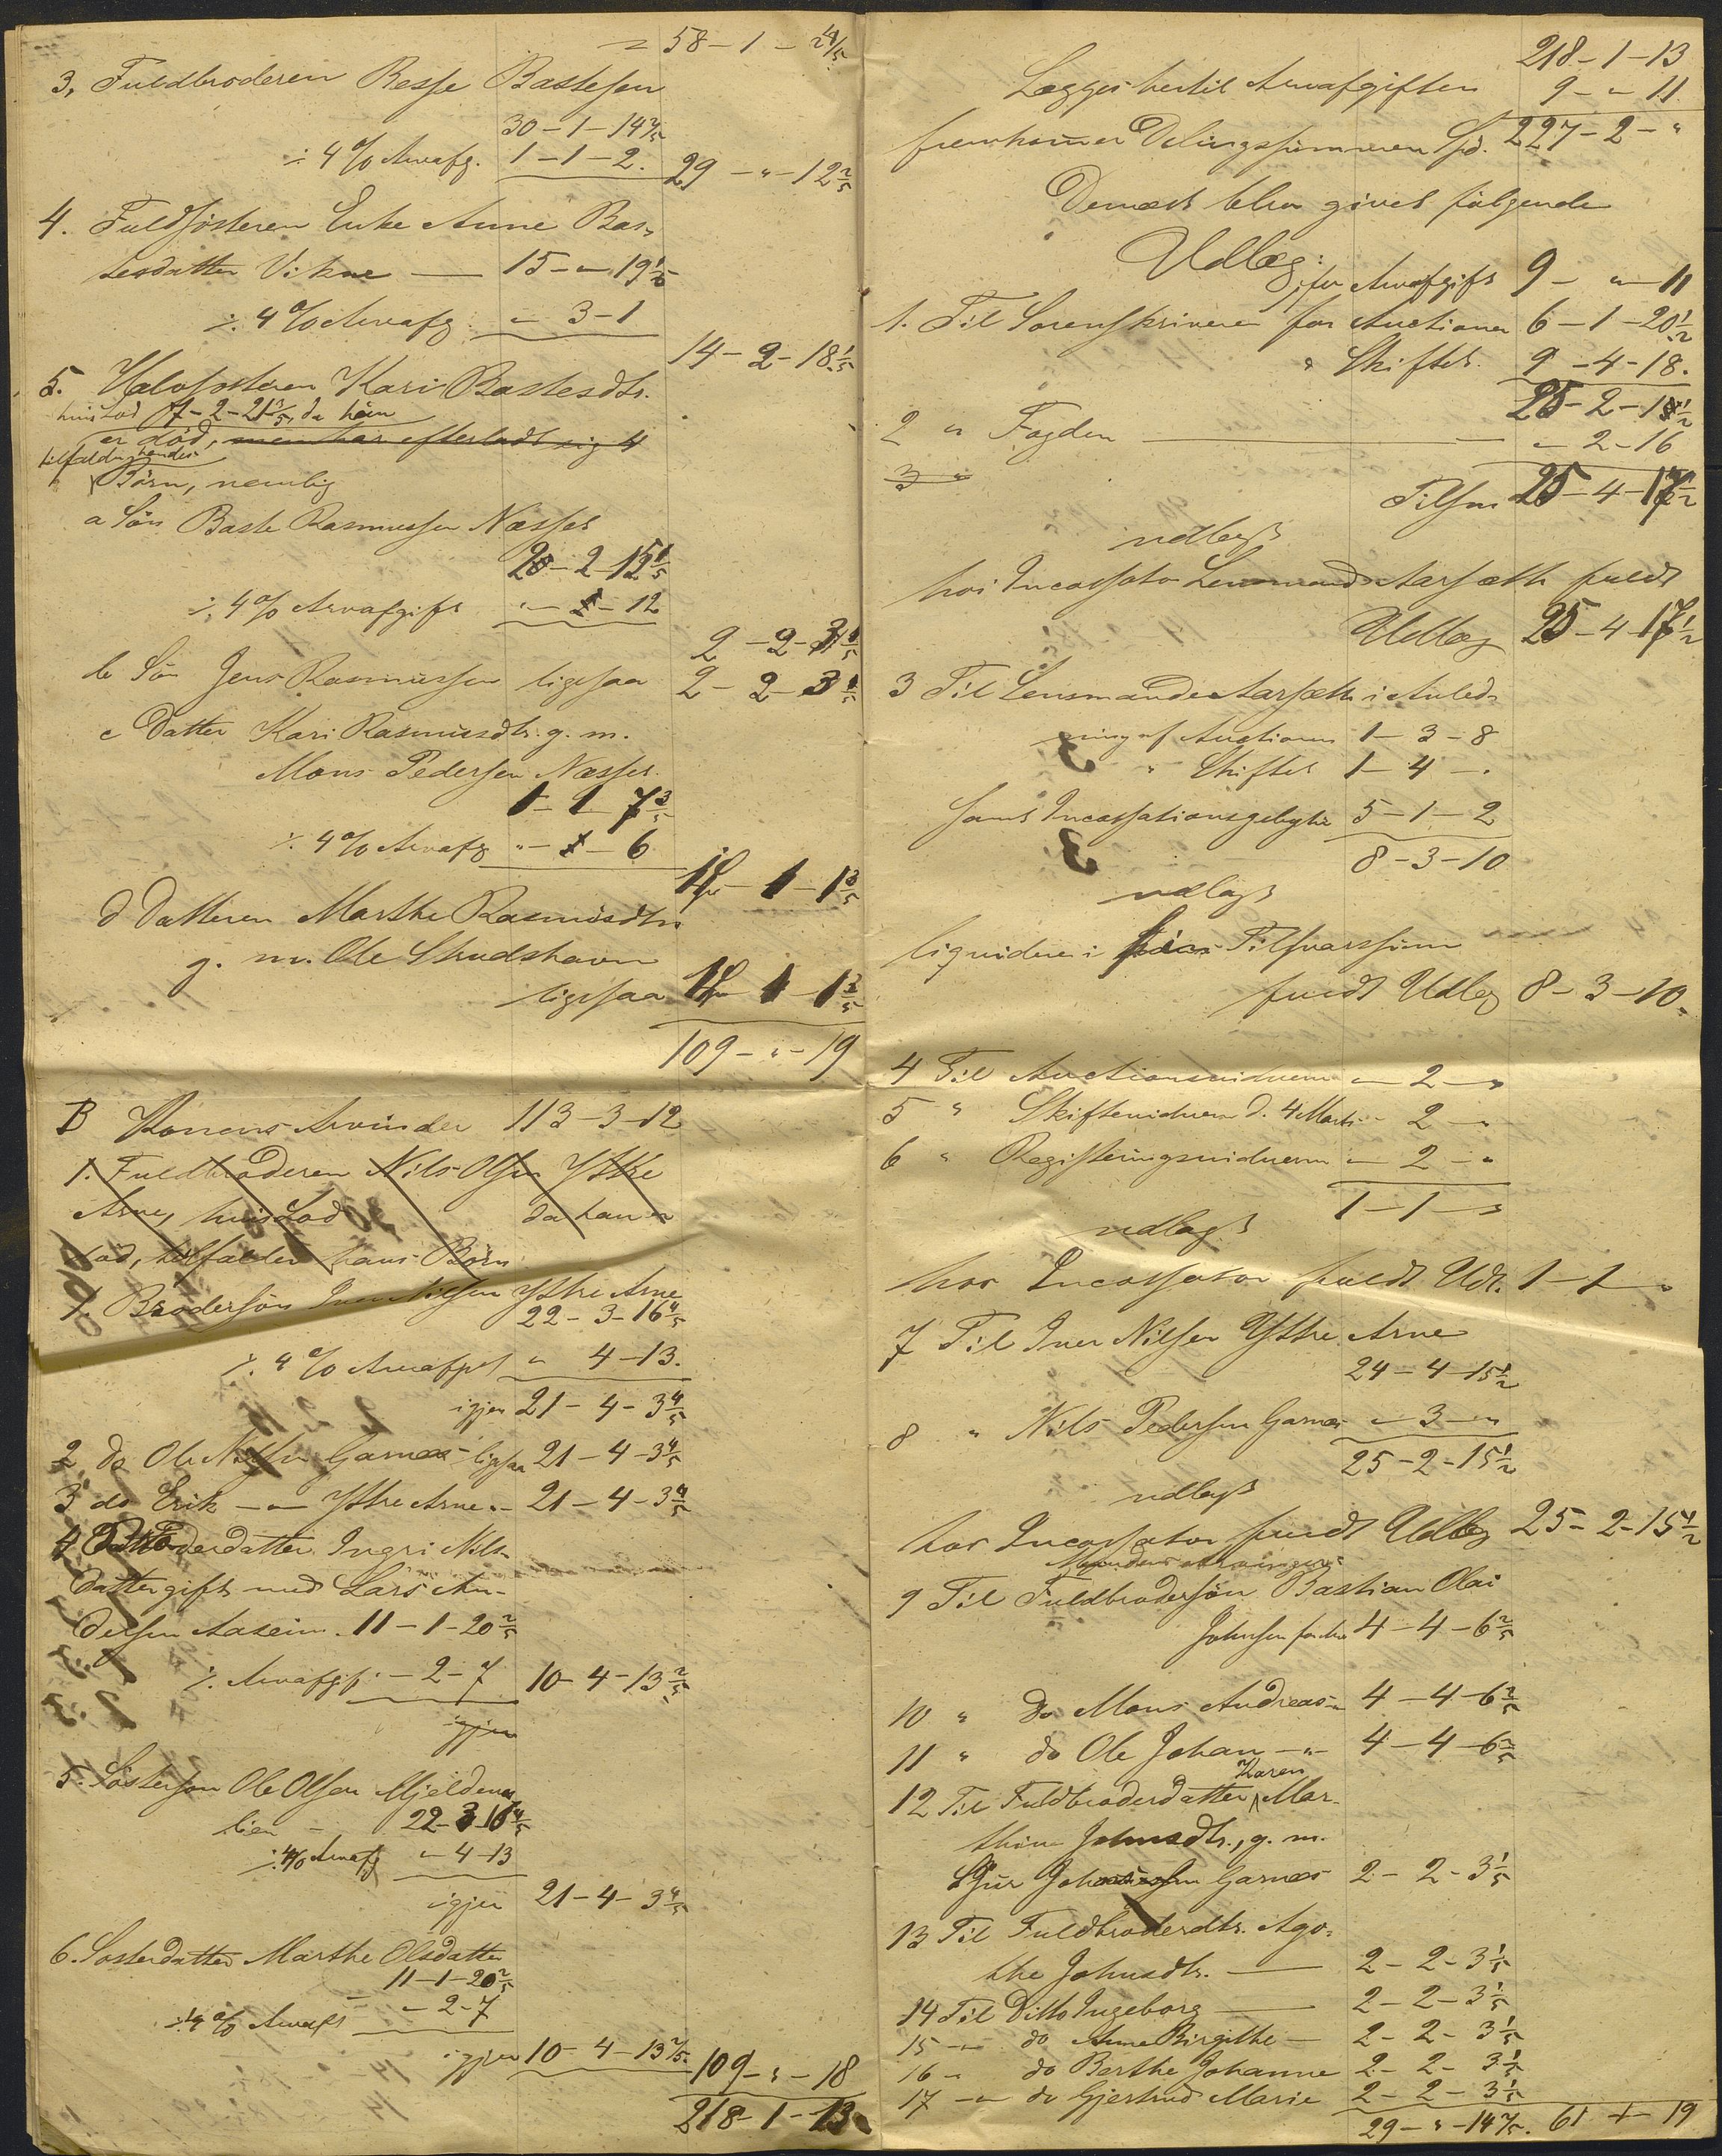 = 58 – 1 – 24 4/5
3, Fuldbroderen Besse Bastesen
30 – 1 – 14 2/5
÷ 4 % Arvafg. 1 – 1 – 2. 29 – " – 12 2/5
4. Fuldsösteren Enke Anne Bas-
tesdatter Vikne — 15 – " – 19 1/5
÷ 4 % Arvafg. " – 3 – 1
14 – 2 – 18 1/5
5. Halvsösteren Kari Bastesdtr.
hvis Lod 7 – 2 – 21 3/5, da hun
er död, men har efterladt sig 4
tilfalder hendes
Börn, nemlig
a Sön Baste Rasmussen Næsset
2 – 2 – 15 1/5
÷ 4 % Arvafgift " – " – 12
2 – 2 – 3 1/5
b Sön Jens Rasmussen ligesaa 2 – 2 – 3 1/5
c Datter Kari Rasmusdtr. g. m.
Mons Pedersen Næsset.
1 – 1 – 7 3/5
÷ 4 % Arvafg " – " – 6
1 – 1 – 1 3/5
d Datteren Marthe Rasmusdtr.
g. m. Ole Skudshavn
ligesaa 1 – 1 – 1 3/5
109 – " – 19
B Konens Arvinder 113 – 3 – 12
1. Fuldbroderen Nils Olsen Ytre
Arne, hvis Lod da han er
död, tilfalder hans Börn
1. Brodersön Iver Nilsen Ystre Arne
22 – 3 – 16 4/5
÷ 4 % Arvafgift " 4 – 13.
igjen 21 – 4 – 3 4/5
2 do Ole Nilsen Garnæs – ligesaa 21 – 4 – 3 4/5
3 do Erik — " — Ystre Arne " – 21 – 4 – 3 4/5
4 Broderdatter Ingri Nils-
datter gift med Lars An-
dersen Aaseim. 11 – 1 – 20 2/5
÷ Arvafgift " – 2 – 7 10 – 4 – 13 2/5
igjen
5. Söstersön Ole Olsen Mjeldema
lien – 22 – 3 – 16 4/5
÷ 4% Arvafg " – 4 – 13
igjen 21 – 4 – 3 4/5
6. Sösterdatter Marthe Olsdatter
11 – 1 – 20 2/5
÷ 4 % Arvaft " – 2 – 7
igjen 10 – 4 – 13 2/5 109 – " – 18
218 – 1 – 13
218 – 1 – 13
Lægges hertil Arvafgiften 9 – " – 11
fremkommer Delingssummen Spd. 227 – 2 – "
Dernæst blev givet fölgende
Udlæg:
for Arvafgift 9 – " – 11
1. Til Sorenskriveren for Auctionen 6 – 1 – 20 1/2
" Skiftet. 9 – 4 – 18.
25 – 2 – 1 1/2
2 " Fogden — " – 2 – 16
3 "
Tilsm 25 – 4 – 17 1/2
udlagt
hos Incassator Lensmand Aarsæth fuldt
Udlæg 25 – 4 – 17 1/2
3 Til Lensmand Aarsæth i Anled-
ning af Auctionen 1 – 3 – 8
" Skiftet 1 – 4 – "
samt Incassationsgebyhr 5 – 1 – 2
8 – 3 – 10
udlagt
liquidere i Tilsvarssum
fuldt Udlæg 8 – 3 – 10.
4 Til Auctionsvidnerne " – 2 – "
5 " Skiftevidnern d. 4 Marts " – 2 – "
6 " Registeringsvidnerne " – 2 – "
1 – 1 – "
udlagt
hos Incassator fuldt Udl. 1 – 1 – "
7 Til Iver Nilsen Ystre Arne
24 – 4 – 15 1/2
8 " Nils Pedersen Garnæs " – 3 – "
25 – 2 – 15 1/2
udlagt
hos Incassator fuldt Udlæg 25 – 2 – 15 1/2
Mandens Arvinger:
9 Til Fuldbrodersön Bastian Olai
Johnsen 4 – 4 – 6 2/5
10 " do Mons Andreas " 4 – 4 – 6 2/5
11 " do Ole Johan – " – 4 – 4 – 6 2/5
Karen
12 Til Fuldbroderdatter Mar-
thine Johnsdtr., g. m.
Sjur Garnæs 2 – 2 – 3 1/5
13 Til Fuldbroderdtr. Ago-
the Johnsdtr. — 2 – 2 – 3 1/5
14 Til Ditto Ingeborg — 2 – 2 – 3 1/5
15 – " do Anne Birgitte — 2 – 2 – 3 1/5
16 – " do Berthe Johanne 2 – 2 – 3 1/5
17 – " do Gjertrud Marie 2 – 2 – 3 1/5
29 – " – 14 2/5. 61 – 1 – 19